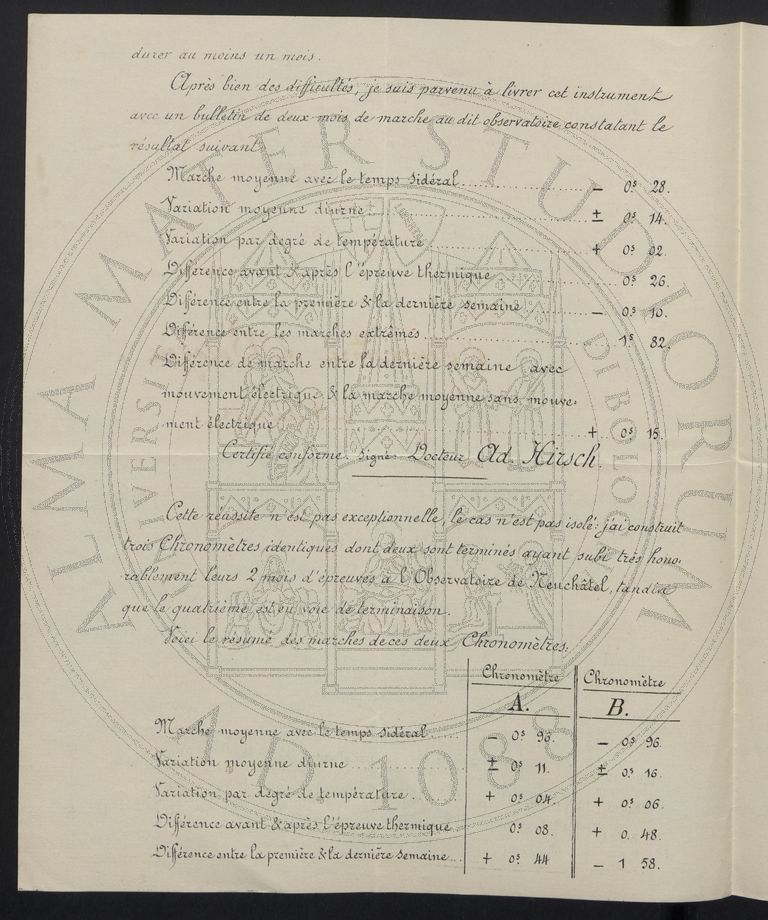 durer au moins un mois.
Après bien des difficultés, je suis parvenu à livrer cet instrument
avec un bulletin de deux mois de marche au dit observatoire constatant le
résultat suivant
Marche moyenne avec le temps sidéral — 0s 28.
Variation moyenne diurne ± 0s 14.
Variation par degré de température + 0s 02.
Différence avant & après l'épreuve thermique 0s 26.
Différence entre la première & la dernière semaine — 0s 10.
Différence entre les marches extrêmes 1s 82.
Différence de marche entre la dernière semaine avec
mouvement électrique & la marche moyenne sans mouve=
ment électrique + 0s 15.
Certifié conforme. signé: Docteur Ad. Hirsch.
Cette réussite n'est pas exceptionnelle, le cas n'est pas isolé: j'ai construit
trois Chronomètres identiques dont deux sont terminés ayant subi très hono-
rablement leurs 2 mois d'épreuves à l'Observatoire de Neuchâtel, tandis
que le quatrième est en voie de terminaison.
Voici le résumé des marches de ces deux Chronomètres:
Chronomètre A. Chronomètre B.
Marche moyenne avec le temps sidéral — 0s 96. — 0s 96.
Variation moyenne diurne ± 0s 11. ± 0s 16.
Variation par degré de température + 0s 04. + 0s 06.
Différence avant & après l'épreuve thermique 0s 08. + 0. 48.
Différence entre la première & la dernière semaine + 0s 44 — 1 58.
ALMA MATER STUDIORUM
A.D. 1088